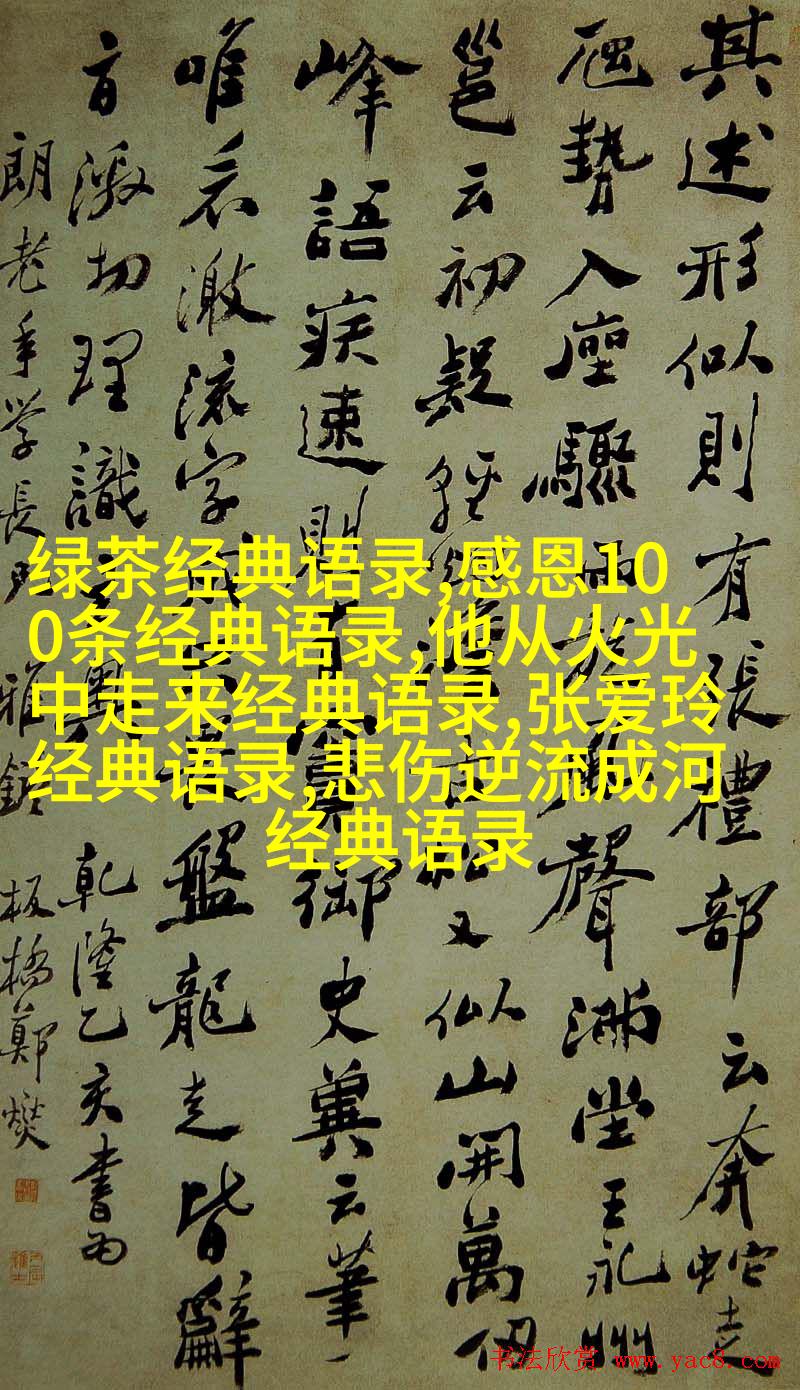 其述形似則有張禮部云奔蛇走
虺勢入座驟雨旋風聲滿堂王永州
邕云初疑輕煙澹古松又似山開萬仞
峰語疾速則有竇御史冀云筆下
唯看激流字成只畏盤龍走皆辭
旨激切理識玄奧 乾隆乙亥書為
朗老年學長兄 雅鑒 板橋鄭燮
绿茶经典语录,感恩10
0条经典语录,他从火光
中走来经典语录,张爱玲
经典语录,悲伤逆流成河
经典语录
书法欣赏 www.yac8.com